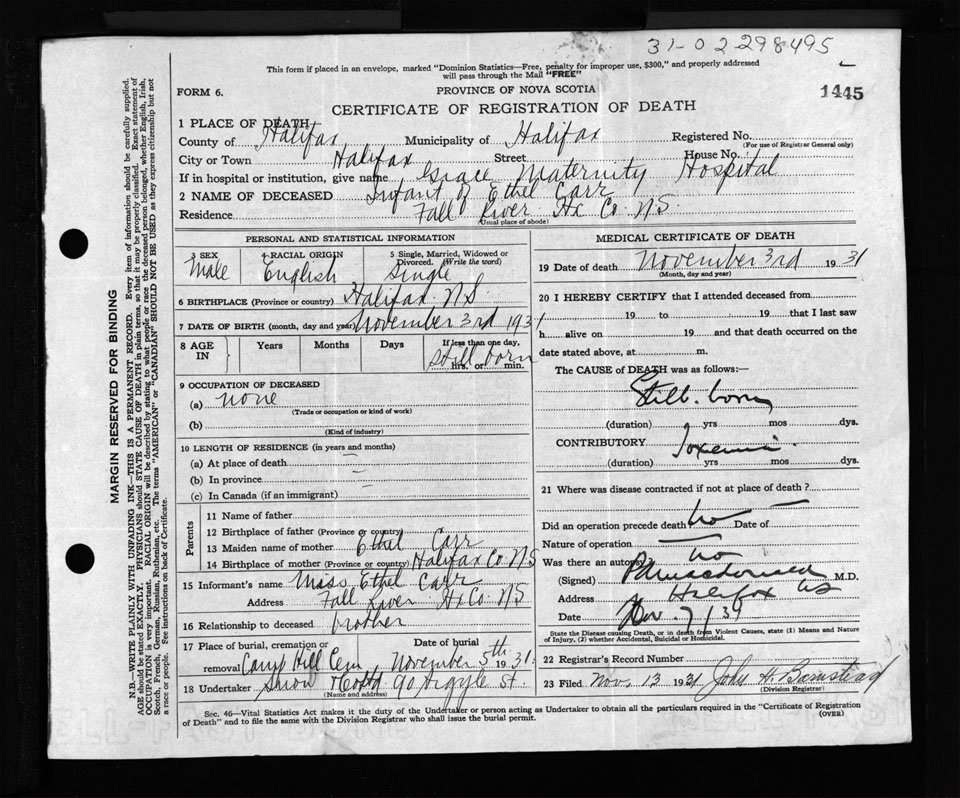 31-02 298495
This form if placed in an envelope, marked "Dominion Statistics—Free, penalty for improper use, $300," and properly addressed
will pass through the Mail "FREE"
FORM 6.
PROVINCE OF NOVA SCOTIA
1445
CERTIFICATE OF REGISTRATION OF DEATH
1 PLACE OF DEATH
County of Halifax Municipality of Halifax Registered No.
(For use of Registrar General only)
City or Town Halifax Street House No.
If in hospital or institution, give name Grace Maternity Hospital
2 NAME OF DECEASED Infant of Ethel Carr
Residence Fall River Hx Co. N.S.
(Usual place of abode)
PERSONAL AND STATISTICAL INFORMATION
3 SEX 4 RACIAL ORIGIN 5 Single, Married, Widowed or
Divorced. (Write the word)
Male English Single
6 BIRTHPLACE (Province or country) Halifax N.S.
7 DATE OF BIRTH (month, day and year) November 3rd 1931
8 AGE IN Years Months Days If less than one day,
still born
hrs. or min.
9 OCCUPATION OF DECEASED
(a) none
(Trade or occupation or kind of work)
(b)
(Kind of industry)
10 LENGTH OF RESIDENCE (in years and months)
(a) At place of death —
(b) In province —
(c) In Canada (if an immigrant) —
Parents
11 Name of father
12 Birthplace of father (Province or country)
13 Maiden name of mother Ethel Carr
14 Birthplace of mother (Province or country) Halifax Co N.S
15 Informant's name Miss Ethel Carr
Address Fall River Hx Co. N S
16 Relationship to deceased mother
17 Place of burial, cremation or Date of burial
removal Camp Hill Cem. November 5th 1931.
18 Undertaker Snow & Co Ltd 90 Argyle St.
(Name and address)
MEDICAL CERTIFICATE OF DEATH
19 Date of death November 3rd 1931
(Month, day and year)
20 I HEREBY CERTIFY that I attended deceased from
19 to 19 that I last saw
h alive on 19 and that death occurred on the
date stated above, at m.
The CAUSE of DEATH was as follows:—
Still-born
(duration) yrs mos dys.
CONTRIBUTORY Toxemia
(duration) yrs mos dys.
21 Where was disease contracted if not at place of death ? —
Did an operation precede death No Date of
Nature of operation —
Was there an autopsy No
(Signed) M.D.
Address Halifax NS
Date Nov. 7/31
State the Disease causing Death, or in death from Violent Causes, state (1) Means and Nature
of Injury, (2) whether Accidental, Suicidal or Homicidal.
22 Registrar's Record Number
23 Filed Nov. 13 1931 John H. Barnstead
(Division Registrar)
Sec. 46—Vital Statistics Act makes it the duty of the Undertaker or person acting as Undertaker to obtain all the particulars required in the "Certificate of Registration
of Death" and to file the same with the Division Registrar who shall issue the burial permit.
(OVER)
MARGIN RESERVED FOR BINDING
N.B.—WRITE PLAINLY WITH UNFADING INK—THIS IS A PERMANENT RECORD. Every item of information should be carefully supplied.
AGE should be stated EXACTLY. PHYSICIANS should STATE CAUSE OF DEATH in plain terms, so that it may be properly classified. Exact statement of
OCCUPATION is very important. RACIAL ORIGIN will be described by stating to what people or race the deceased person belonged, whether English, Irish,
Scotch, French, German, Russian, Ruthenian, etc. The terms "AMERICAN" or "CANADIAN" SHOULD NOT BE USED as they express citizenship but not
a race or people. Fee instructions on back of Certificate.